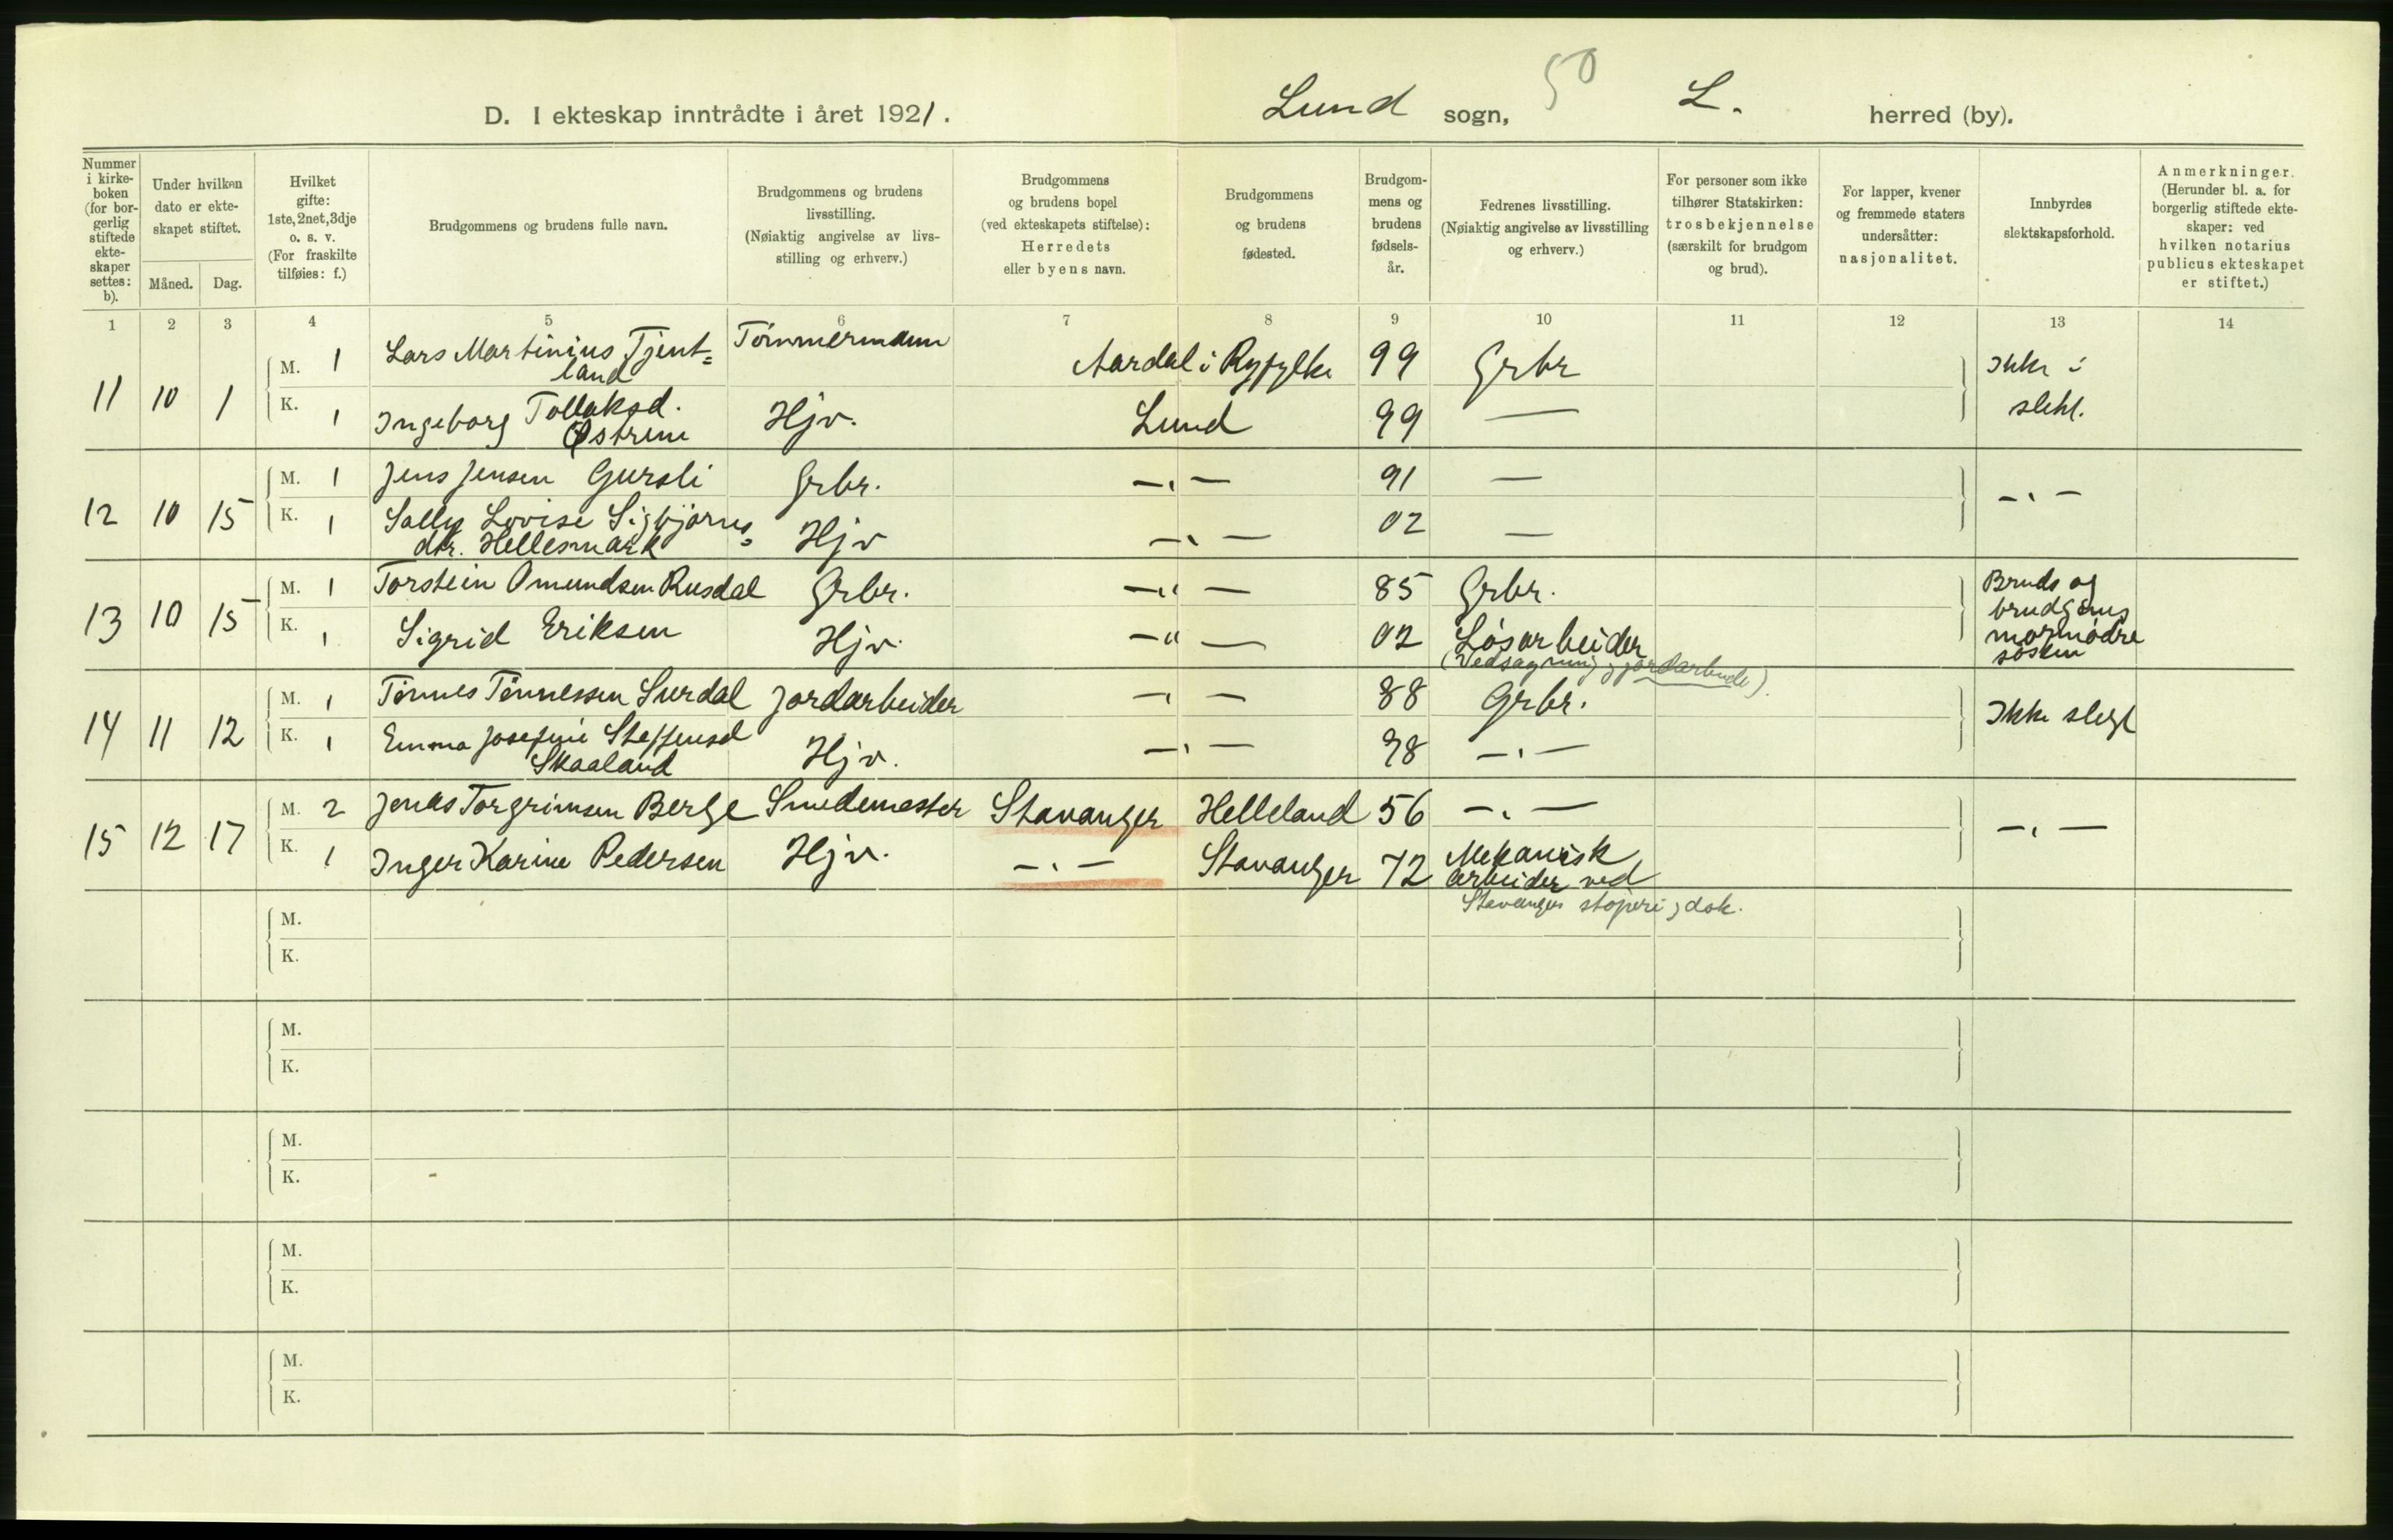 50
D. I ekteskap inntrådte i året 1921. Lund sogn, L. herred (by).
Nummer i kirke-boken (for bor-gerlig stiftede ekte-skaper settes: b).
Under hvilken dato er ekte-skapet stiftet.
Måned. Dag.
Hvilket gifte: 1ste, 2net, 3dje o. s. v. (For fraskilte tilføies: f.)
Brudgommens og brudens fulle navn.
Brudgommens og brudens livsstilling. (Nøiaktig angivelse av livs-stilling og erhverv.)
Brudgommens og brudens bopel (ved ekteskapets stiftelse): Herredets eller byens navn.
Brudgommens og brudens fødested.
Brudgom-mens og brudens fødsels-år.
Fedrenes livsstilling. (Nøiaktig angivelse av livsstilling og erhverv.)
For personer som ikke tilhører Statskirken: trosbekjennelse (særskilt for brudgom og brud).
For lapper, kvener og fremmede staters undersåtter: nasjonalitet.
Innbyrdes slektskapsforhold.
Anmerkninger. (Herunder bl. a. for borgerlig stiftede ekte-skaper: ved hvilken notarius publicus ekteskapet er stiftet.)
1 2 3 4 5 6 7 8 9 10 11 12 13 14
11 10 1 M. 1 Lars Martinius Tjent=
land Tømmermann Aardal i Ryfylke 99 Grbr Ikke i
K. 1 Ingeborg Tollaksd.
Østreim Hjv. Lund 99 — slekt.
12 10 15 M. 1 Jens Jensen Gursli Grbr. —„— 91 — —„—
K. 1 Sally Lovise Sigbjørns=
dtr. Hellesmark Hjv —„— 02 —
13 10 15 M. 1 Torstein Omundsen Rusdal Grbr. —„— 85 Grbr. Bruds og
brudgoms
mormødre
søsken
K. 1 Sigrid Eriksen Hjv. —„— 02 Løsarbeider
(Vedsagning, jordarbeide).
14 11 12 M. 1 Tønnes Tønnessen Surdal Jordarbeider —„— 88 Grbr. Ikke slegt
K. 1 Emma Josefine Steffensd
Skaaland Hjv. —„— 98 —„—
15 12 17 M. 2 Jonas Torgrimsen Berge Smedemester Stavanger Helleland 56 —„— —„—
K. 1 Inger Karine Pedersen Hjv. —„— Stavanger 72 Mekanisk
arbeider ved
Stavanger støperi, dok.
M.
K.
M.
K.
M.
K.
M.
K.
M.
K.